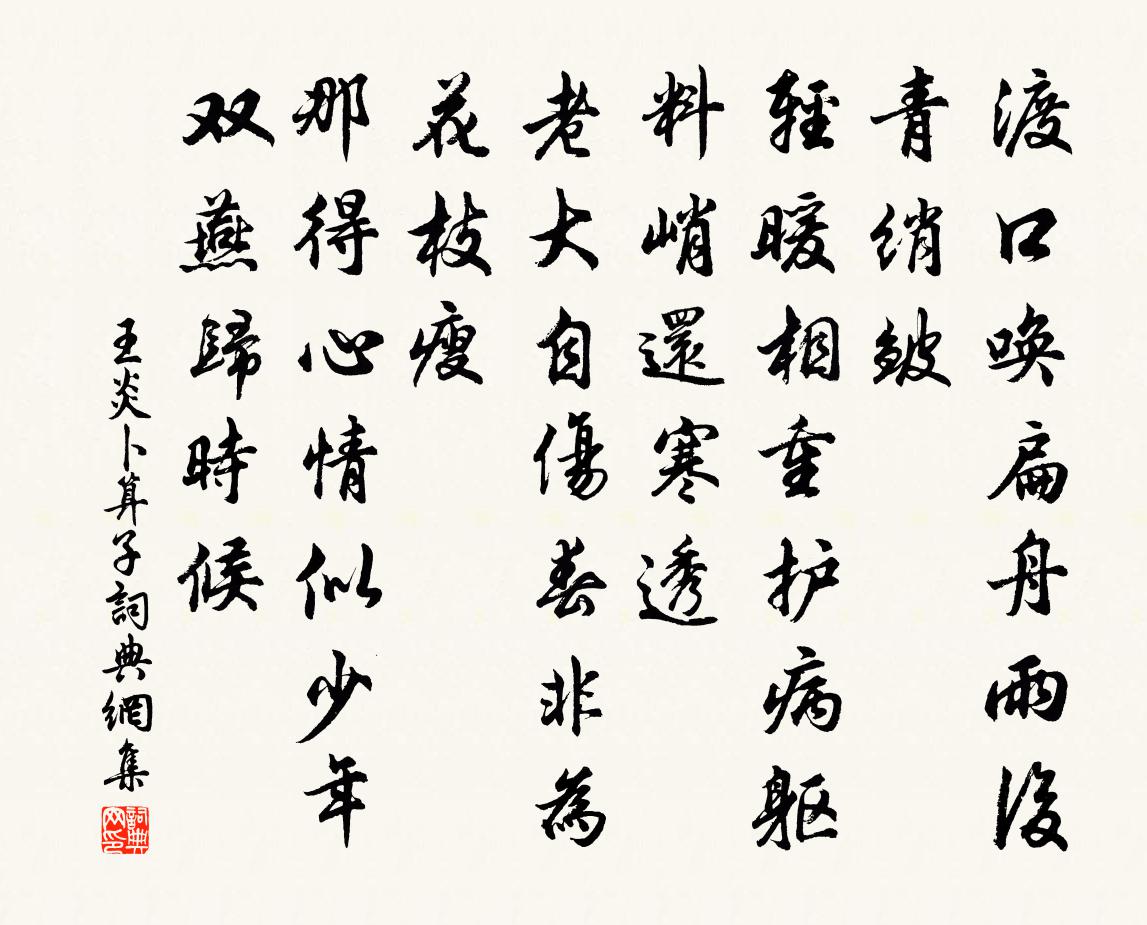 渡口唤扁舟雨後
青绡皱
輕暖相重护病躯
料峭還寒透
老大自傷春非為
花枝瘦
那得心情似少年
双燕歸時候
王炎卜算子詞典網集
詞典网印